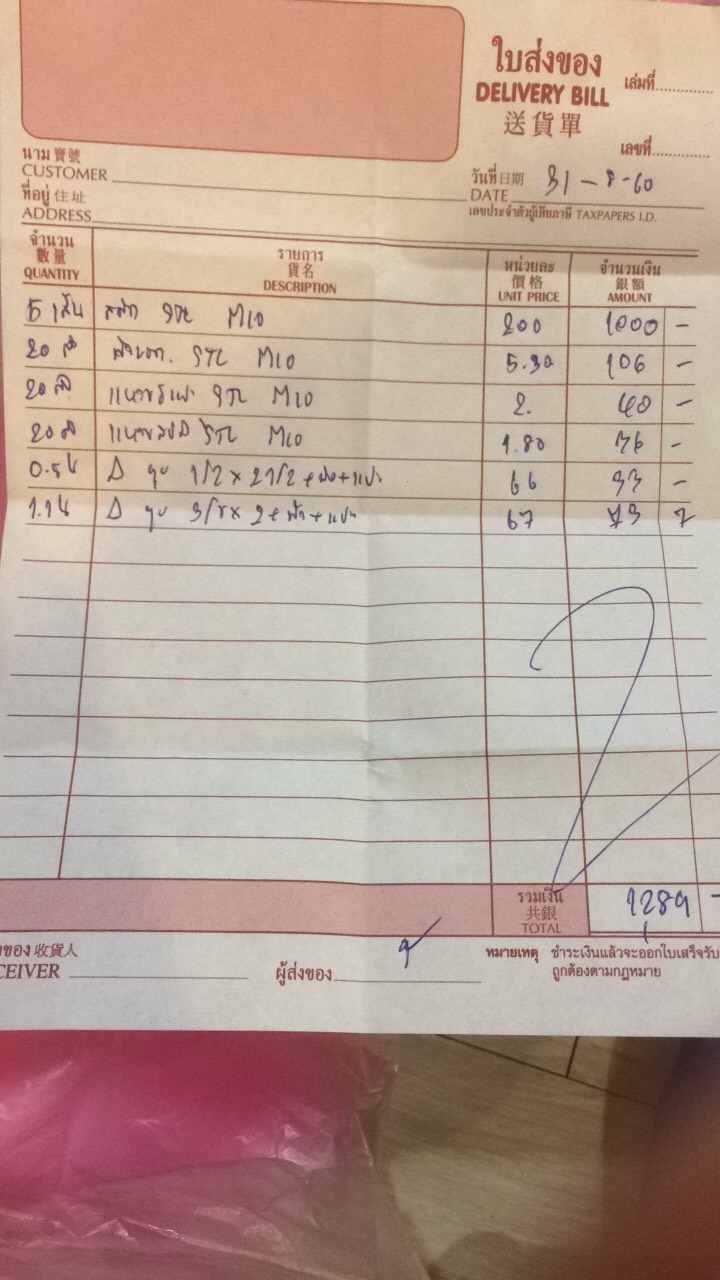 ใบส่งของ
DELIVERY BILL
送貨單
เล่มที่
เลขที่
นาม 寶號
CUSTOMER
ที่อยู่ 住址
ADDRESS
วันที่ 日期 31-8-60
DATE
เลขประจำตัวผู้เสียภาษี TAXPAPERS I.D.
จำนวน 數量 QUANTITY รายการ 貨名 DESCRIPTION หน่วยละ 價格 UNIT PRICE จำนวนเงิน 銀額 AMOUNT
5 เส้น STL M10 200 1000 -
20 STL M10 5.30 106 -
20 STL M10 2. 40 -
20 STL M10 1.80 36 -
0.5 1/2 x 2 1/2 + 66 33 -
1.1 3/8 x 2 + 67 73 7
รวมเงิน 共銀 TOTAL 1289 -
ของ 收貨人
CEIVER
ผู้ส่งของ
หมายเหตุ ชำระเงินแล้วจะออกใบเสร็จรับ
ถูกต้องตามกฎหมาย